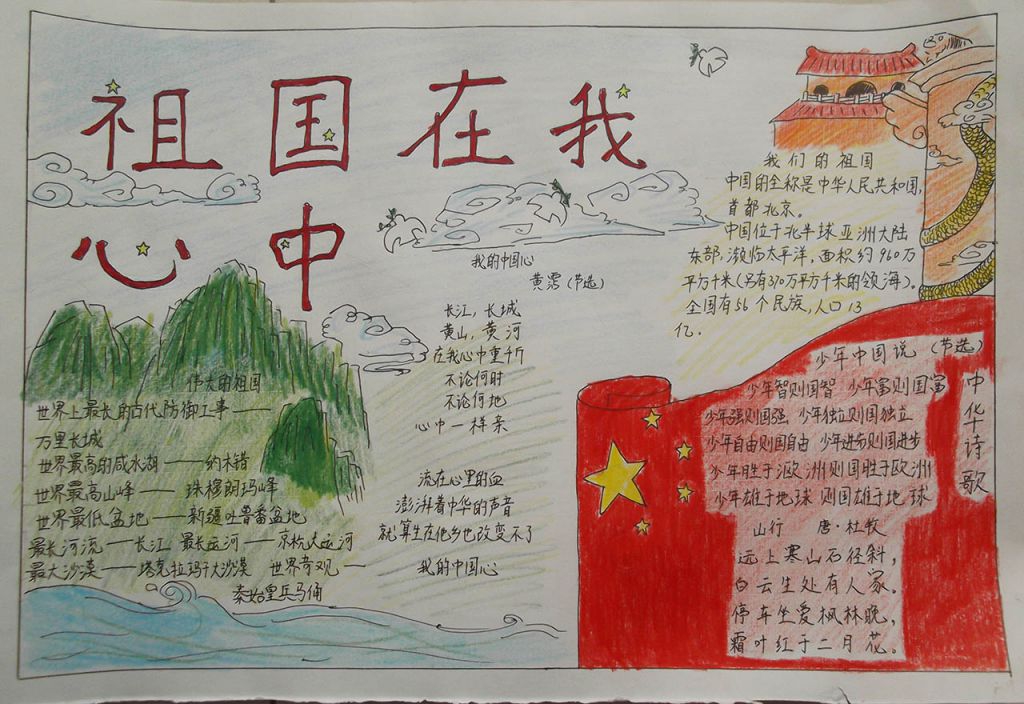 祖国在我
心中
伟大的祖国
世界上最长的古代防御工事——
万里长城
世界最高的咸水湖——纳木错
世界最高山峰——珠穆朗玛峰
世界最低盆地——新疆吐鲁番盆地
最长河流——长江 最长运河——京杭大运河
最大沙漠——塔克拉玛干大沙漠 世界奇观—
秦始皇兵马俑
我的中国心
黄霑(节选)
长江，长城
黄山，黄河
在我心中重千斤
不论何时
不论何地
心中一样亲
流在心里的血
澎湃着中华的声音
就算生在他乡也改变不了
我的中国心
我们的祖国
中国的全称是中华人民共和国，
首都北京。
中国位于北半球亚洲大陆
东部，濒临太平洋，面积约960万
平方千米(另有370万平方千米的领海)。
全国有56个民族，人口13
亿。
少年中国说(节选)
少年智则国智 少年富则国富
少年强则国强 少年独立则国独立
少年自由则国自由 少年进步则国进步
少年胜于欧洲则国胜于欧洲
少年雄于地球 则国雄于地球
中华诗歌
山行 唐·杜牧
远上寒山石径斜，
白云生处有人家。
停车坐爱枫林晚，
霜叶红于二月花。